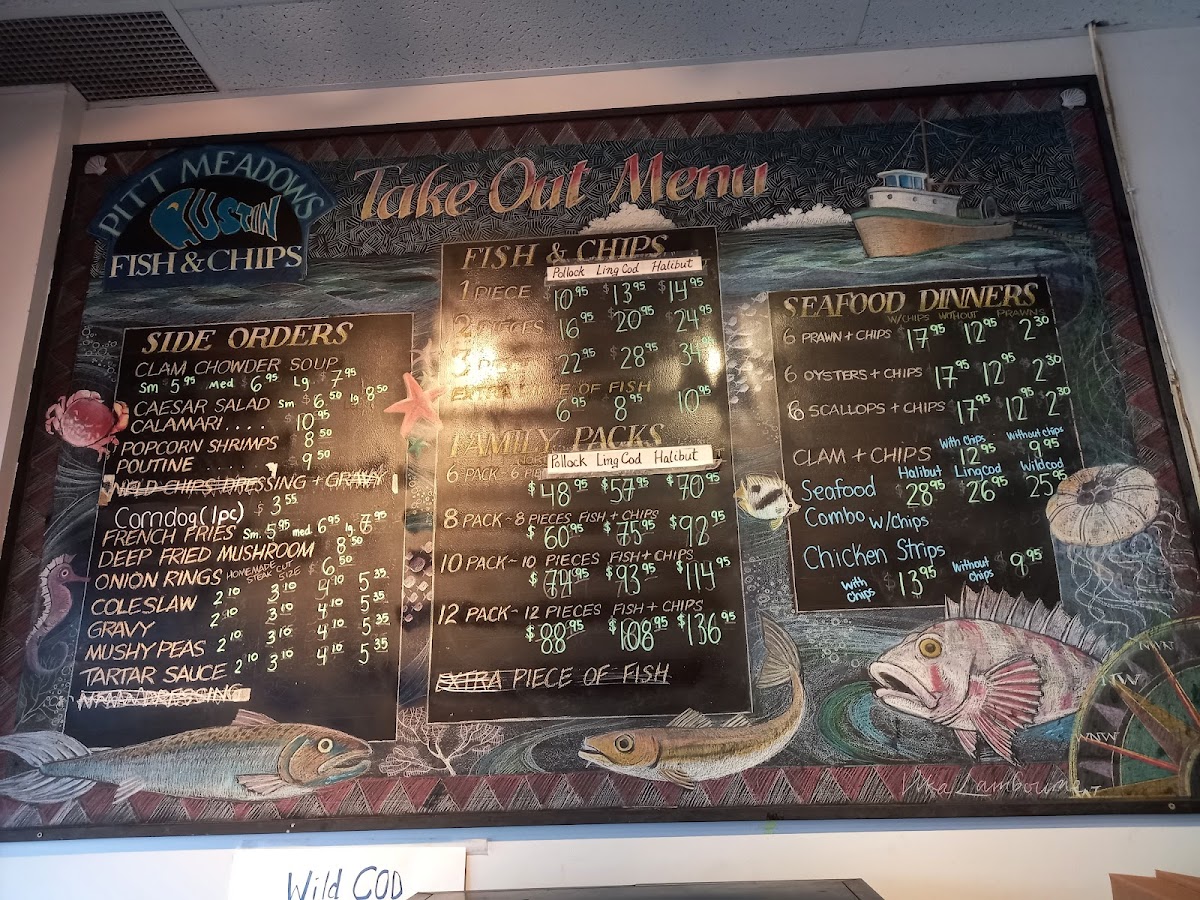 PITT MEADOWS
AUSTIN
FISH & CHIPS
Take Out Menu
SIDE ORDERS
CLAM CHOWDER SOUP
Sm 5.95 med $6.95 Lg 7.95
CAESAR SALAD sm $6.50 lg 8.50
CALAMARI.... $10.95
POPCORN SHRIMPS 8.50
POUTINE 9.50
CHIPS, DRESSING + GRAVY
Corndog (1pc) $3.55
FRENCH FRIES Sm. 5.95 med. 6.95 lg. 7.95
DEEP FRIED MUSHROOM 8.50
ONION RINGS HOMEMADE STEAK CUT SIZE $6.50
COLESLAW 2.10 3.10 4.10 5.35
GRAVY 2.10 3.10 4.10 5.35
MUSHY PEAS 2.10 3.10 4.10 5.35
TARTAR SAUCE 2.10 3.10 4.10 5.35
DRESSING
FISH & CHIPS
Pollock Ling Cod Halibut
1 PIECE $10.95 $13.95 $14.95
2 PIECES 16.95 $20.95 $24.95
22.95 $28.95 34.95
EXTRA PIECE OF FISH
6.95 8.95 10.95
FAMILY PACKS
Pollock Ling Cod Halibut
6 PACK - 6
$48.95 $57.95 $70.95
8 PACK - 8 PIECES FISH + CHIPS
$60.95 $75.95 $92.95
10 PACK - 10 PIECES FISH + CHIPS
$74.95 $93.95 $114.95
12 PACK - 12 PIECES FISH + CHIPS
$88.95 $108.95 $136.95
EXTRA PIECE OF FISH
SEAFOOD DINNERS
W/CHIPS WITHOUT PRAWNS
6 PRAWN + CHIPS $17.95 12.95 2.30
6 OYSTERS + CHIPS 17.95 12.95 2.30
6 SCALLOPS + CHIPS $17.95 $12.95 $2.30
With chips Without chips
CLAM + CHIPS 12.95 9.95
Halibut Lingcod Wildcod
Seafood $28.95 $26.95 25.95
Combo w/chips
Chicken Strips
With chips $13.95 Without chips 9.95
NNW
NW
WNW
Vika Lambourne
Wild COD